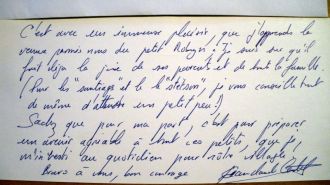 C'est avec un immense plaisir, que j'apprends la
venue parmis nous du petit Je suis sur qu'il
fait déjà la joie de ses parents et de tout la famille
(Pour les "santiags" et le "stetson", je vous conseille tout
de même d'attendre un petit peu!)
Sachez que pour ma part, c'est pour préparer
un avenir agréable à tout ces petits, que je
m'investi au quotidien pour nôtre
Bravo à vous, bon courage